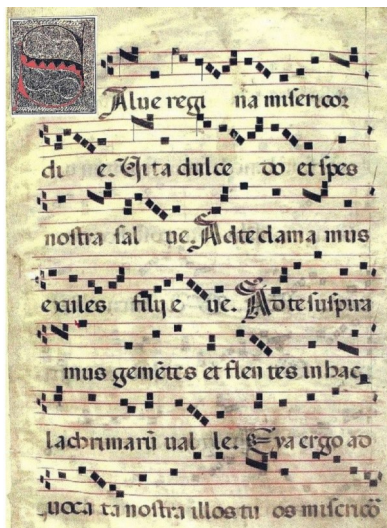 Salue regi na misericor
di e. Vita dulce do et spes
nostra sal ue. Ad te clama mus
exules filij e ue. Ad te suspira
mus gemētes et flen tes in hac
lachrimarū ual le. Eya ergo ad
uoca ta nostra illos tu os misericō